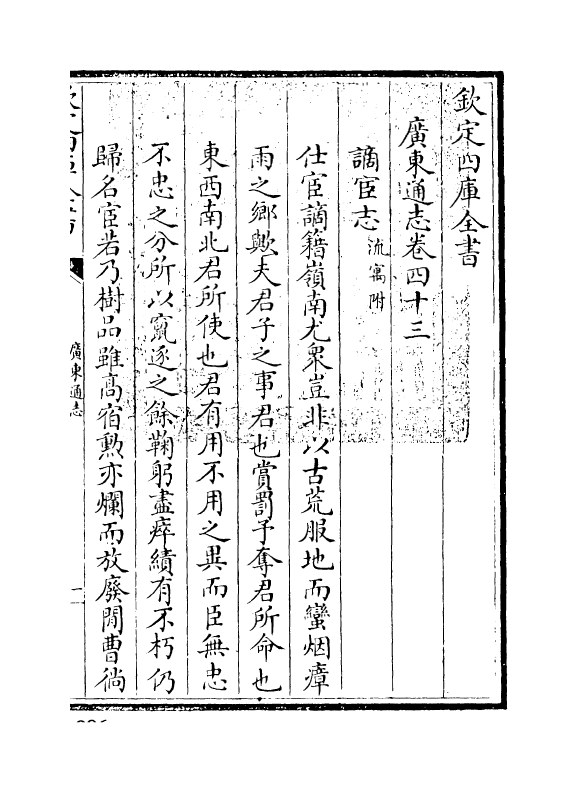 欽定四庫全書
廣東通志卷四十三
謫宦志流寓附
仕宦謫籍嶺南尤衆豈非以古荒服地而蠻烟瘴
雨之鄉歟夫君子之事君也賞罰予奪君所命也
東西南北君所使也君有用不用之異而臣無忠
不忠之分所以竄逐之餘鞠躬盡瘁績有不朽仍
歸名宦若乃樹品雖高宿勲亦爛而放廢閒曹徜
廣東通志
一